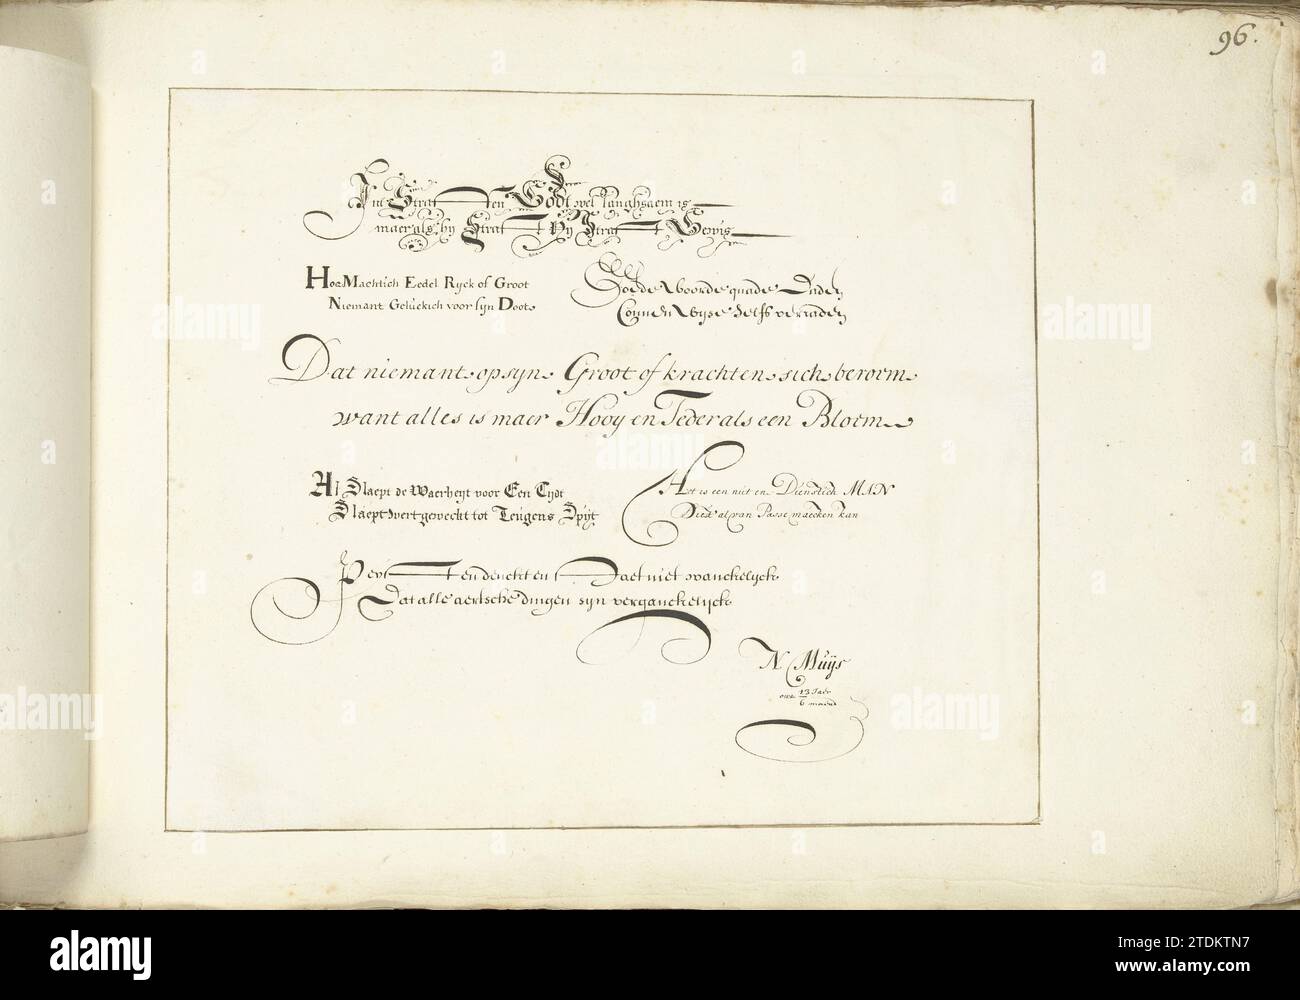 96.
Int Straffen Godt wel langhsaem is
maer als hy Straft Hy Straft Gewis
Hoe Machtich Eedel Ryck of Groot
Goede Woorde quade Daden
Niemant Geluckich voor sijn Doot
Connen Wyse Selfs verraden
Dat niemant op syn Groot of krachten sich beroem
want alles is maer Hooy en Teder als een Bloem
Al Slaept de Waerheyt voor Een Tydt
Het is een niet en Dienstich MAN
Slaept wert gewecht tot Teugens Spijt
Diet al van Passe maecken kan
Peyst en denckt en Daet niet wanckelyck
Dat alle aertsche dingen sijn verganckelijck
N Muijs
out 13 Jaer
6 maend
alamy
Image ID: 2TDKTN7
www.alamy.com